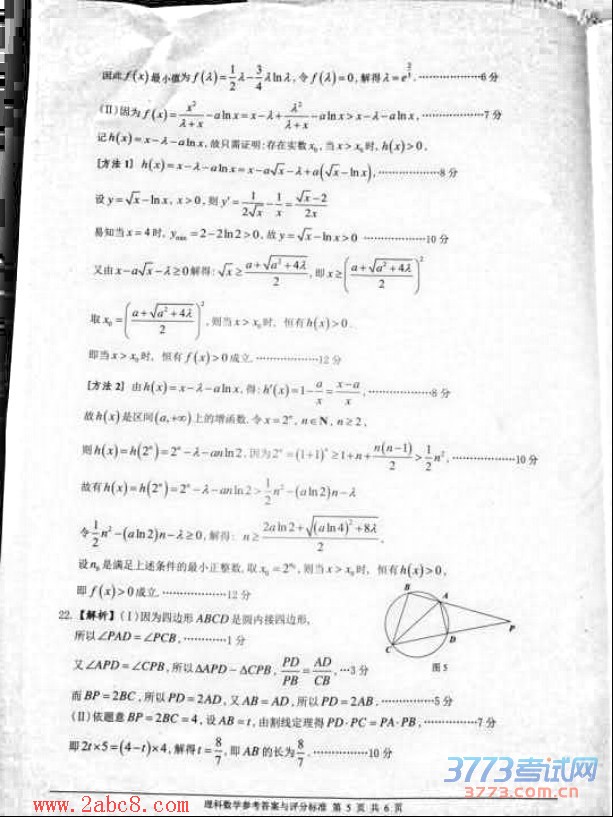 因此f(x)最小值为f(λ)=1/2λ-3/4λlnλ,令f(λ)=0,解得λ=e^(2/3).………………6分
(II)因为f(x)=x²/(λ+x)-alnx=x-λ+λ²/(λ+x)-alnx>x-λ-alnx,………………7分
记h(x)=x-λ-alnx,故只需证明:存在实数x₀,当x>x₀时,h(x)>0.
[方法1] h(x)=x-λ-alnx=x-a√x-λ+a(√x-lnx),………………8分
设y=√x-lnx, x>0,则y'=1/(2√x)-1/x=(√x-2)/(2x)
易知当x=4时, y_min=2-2ln2>0,故y=√x-lnx>0 ………………10分
又由x-a√x-λ≥0解得:√x≥(a+√(a²+4λ))/2,即x≥((a+√(a²+4λ))/2)²
取x₀=((a+√(a²+4λ))/2)²,则当x>x₀时, 恒有h(x)>0.
即当x>x₀时, 恒有f(x)>0成立.………………12分
[方法2] 由h(x)=x-λ-alnx,得:h'(x)=1-a/x=(x-a)/x,………………8分
故h(x)是区间(a,+∞)上的增函数.令x=2ⁿ, n∈N, n≥2,
则h(x)=h(2ⁿ)=2ⁿ-λ-anln2,因为2ⁿ=(1+1)ⁿ≥1+n+n(n-1)/2>1/2n²,………………10分
故有h(x)=h(2ⁿ)=2ⁿ-λ-anln2>1/2n²-(aln2)n-λ
令1/2n²-(aln2)n-λ≥0,解得: n≥(2aln2+√((aln4)²+8λ))/2,
设n₀是满足上述条件的最小正整数,取x₀=2^(n₀),则当x>x₀时, 恒有h(x)>0,
即f(x)>0成立.………………12分
22.【解析】(I)因为四边形ABCD是圆内接四边形,
所以∠PAD=∠PCB,………………1分
又∠APD=∠CPB,所以ΔAPD~ΔCPB, PD/PB=AD/CB,…3分
而BP=2BC,所以PD=2AD,又AB=AD,所以PD=2AB.………………5分
B
A
P
D
C
图5
(II)依题意BP=2BC=4,设AB=t,由割线定理得PD·PC=PA·PB,………………7分
即2t×5=(4-t)×4,解得t=8/7,即AB的长为8/7.………………10分
3773考试网
www.3773.com.cn
http://www.2abc8.com
理科数学参考答案与评分标准 第 5 页 共 6 页